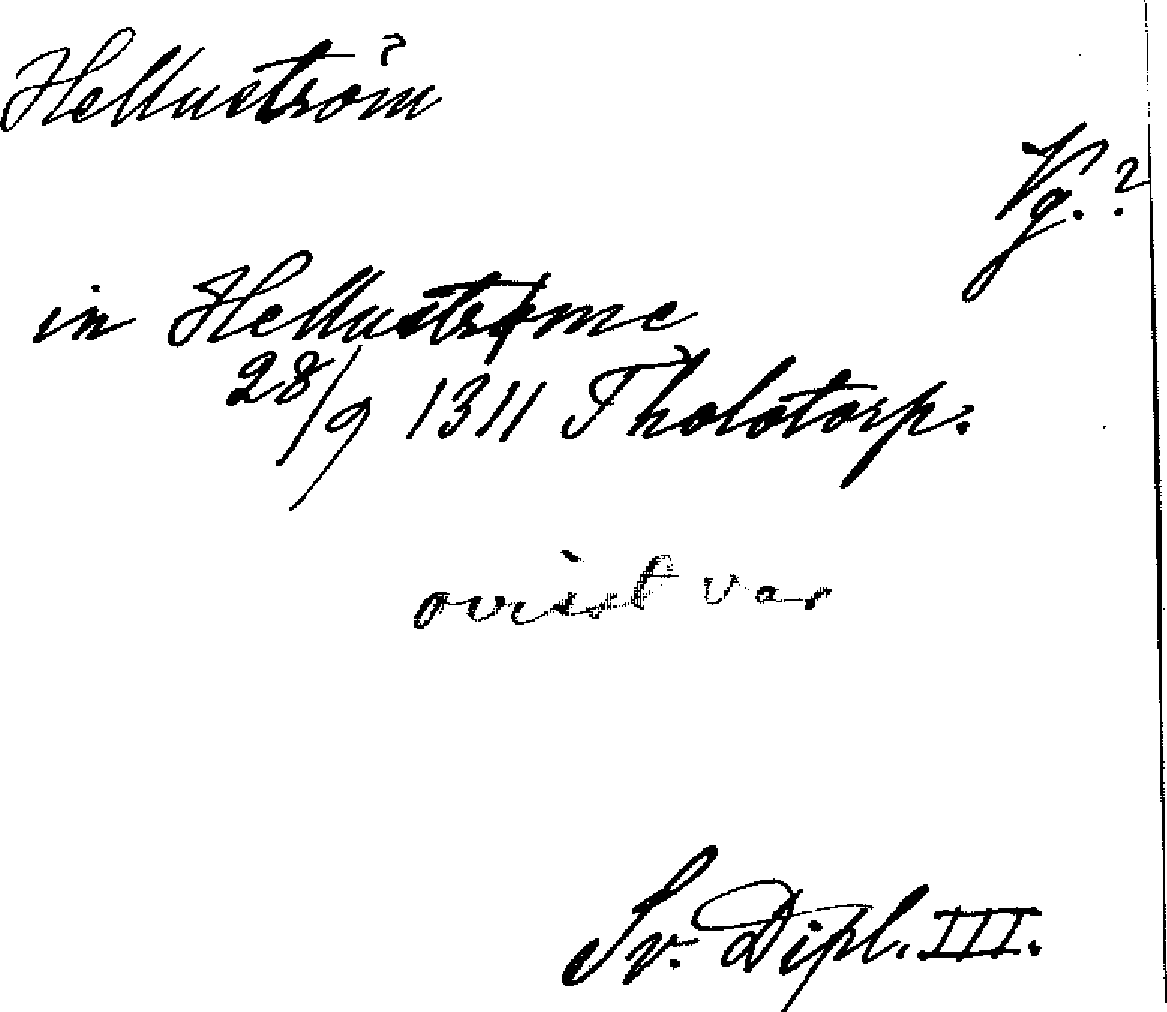 Helluström
Vg.?
in Hellustrøme
28/9 1311 Tholotorp.
ovisst var
Sv. Dipl. III.